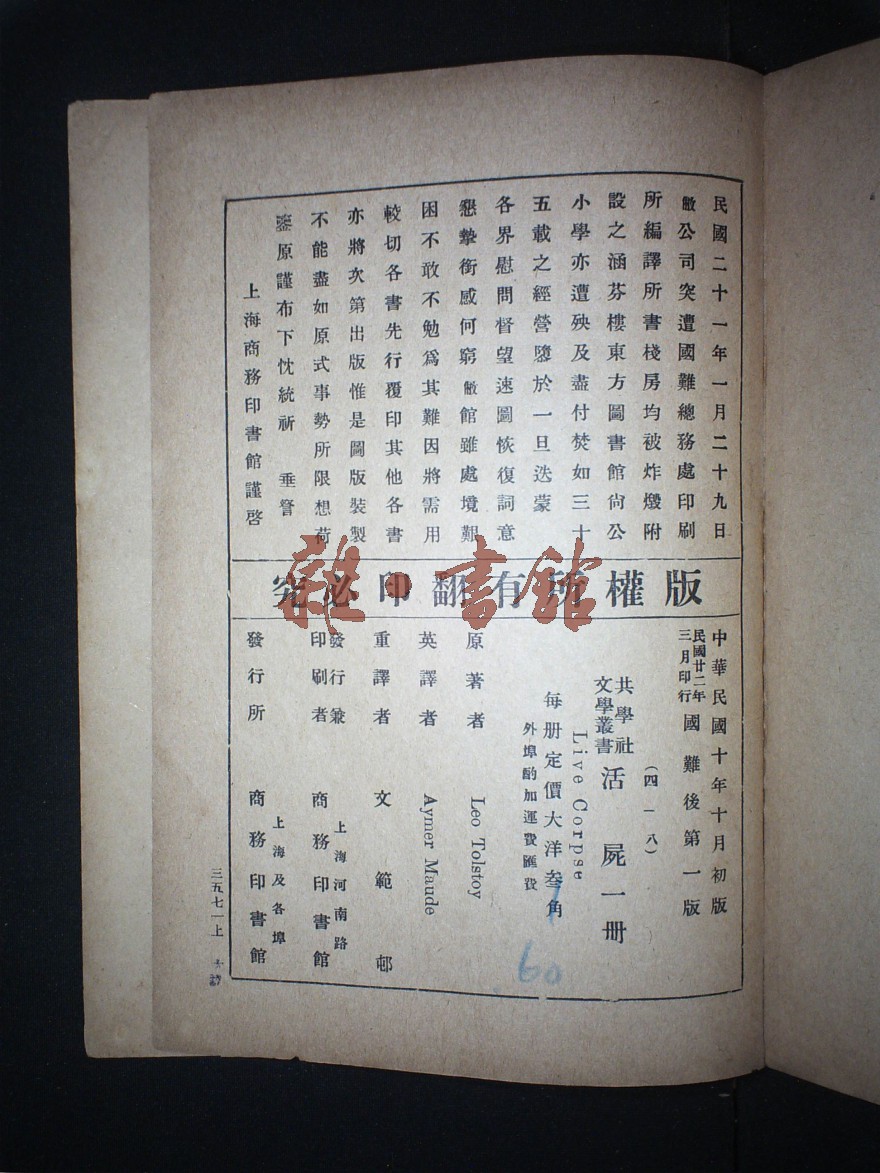 民國二十一年一月二十九日
敝公司突遭國難總務處印刷
所編譯所書棧房均被炸燬附
設之涵芬樓東方圖書館尙公
小學亦遭殃及盡付焚如三十
五載之經營隳於一旦迭蒙
各界慰問督望速圖恢復詞意
懇摯銜感何窮敝館雖處境艱
困不敢不勉爲其難因將需用
較切各書先行覆印其他各書
亦將次第出版惟是圖版裝製
不能盡如原式事勢所限想荷
鑒原謹布下忱統祈 垂詧
上海商務印書館謹啓
版權所有翻印必究
中華民國十年十月初版
民國廿二年
三月印行
國難後第一版
(四一八)
共學社
文學叢書
活屍一册
Live Corpse
每册定價大洋叁角
外埠酌加運費匯費
原著者 Leo Tolstoy
英譯者 Aymer Maude
重譯者 文範邨
發行兼
印刷者
上海河南路
商務印書館
發行所
上海及各埠
商務印書館
三五七一上
60
雜·書館